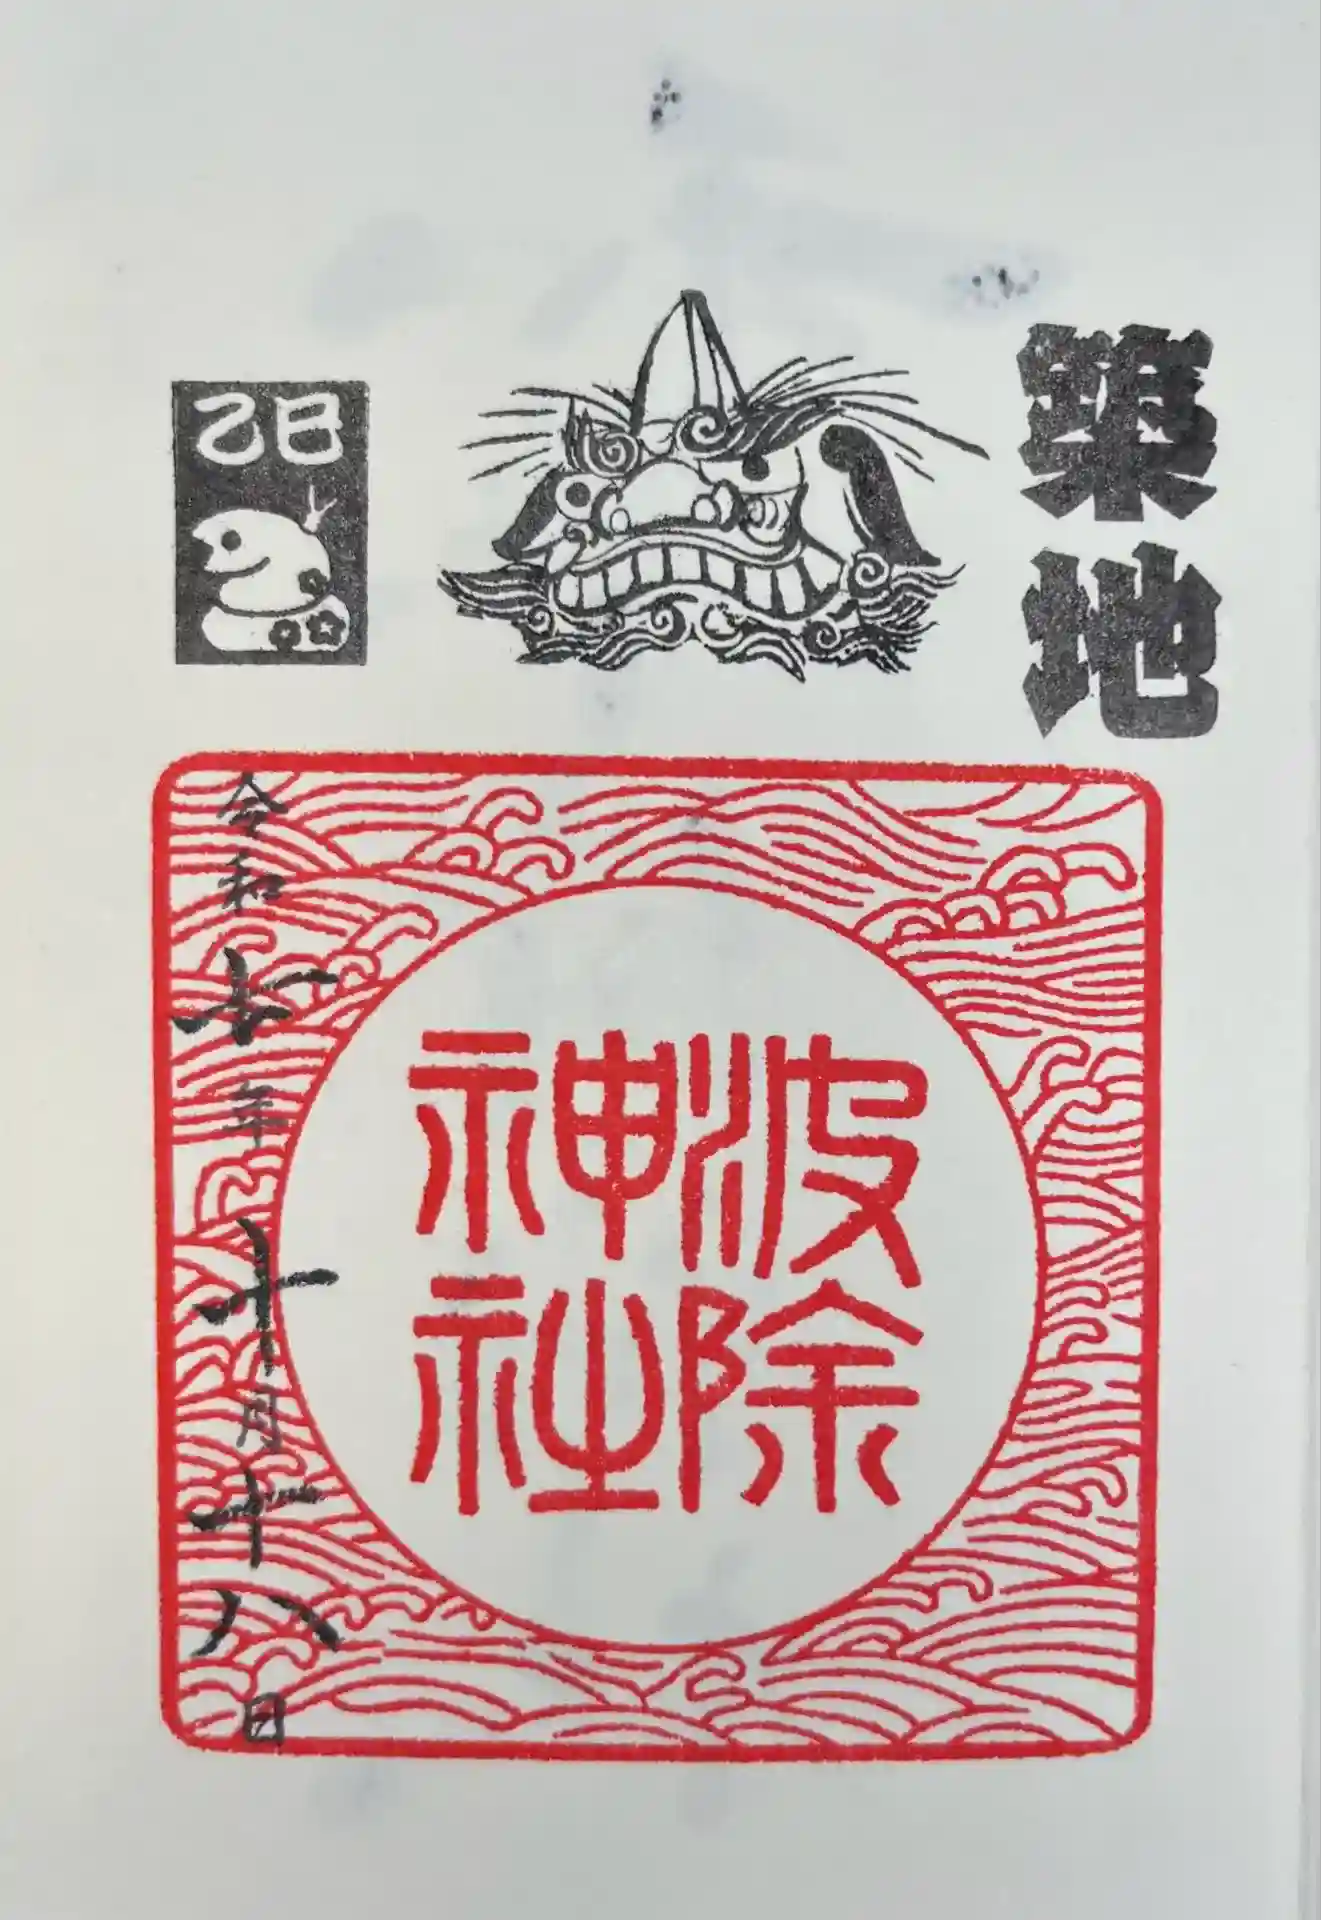 築地
乙巳
波除
神社
令和七年十月十八日